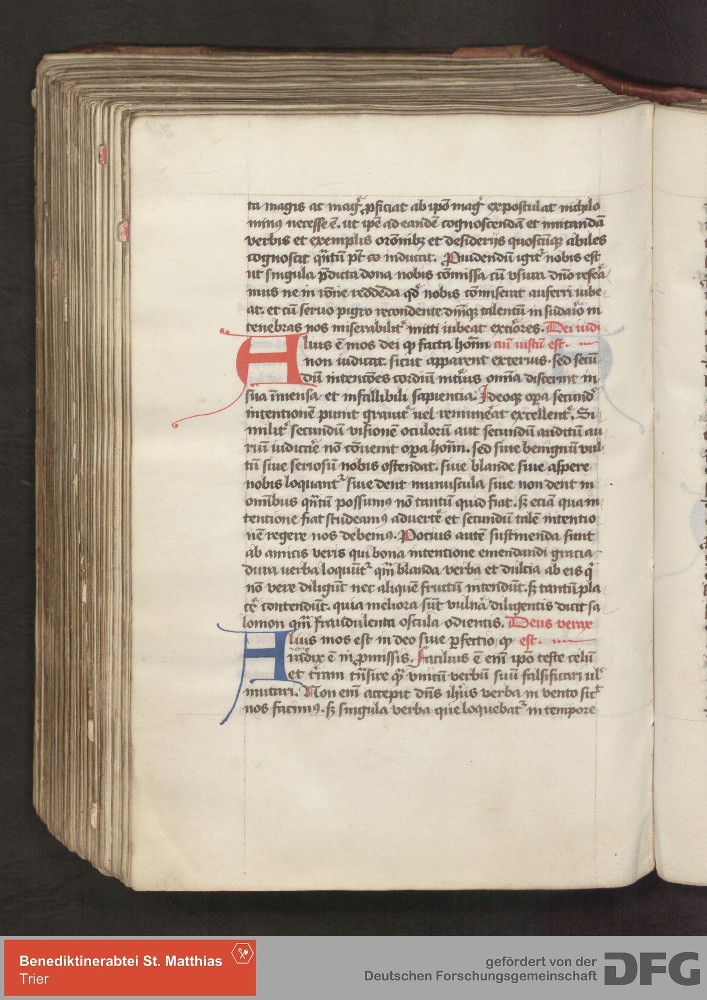 ta magis ac magꝭ ꝓficiat ab ip̄o magꝭ expostulat nichilo
minꝯ necesse ē. ut ip̄e ad eandē cognoscendā et imitandā
verbis et exemplis or̄onibꝫ et desiderijs quoscūqꝫ abiles
cognoscit qn̄tū pt̄ co inducat. Prouidendū igit᷑ nobis est
ut singula p̄dicta dona nobis cōmissa cū vsura dn̄o refera
mus ne in rōne reddēda qd̓ nobis cōmiserat auferri iube
at. et cū seruo pigro recondente dn̄iqꝫ talentū in sudario in
tenebras nos miserabilit᷑ mitti iubeat exc̄iores. Dei iudi
Alius ē mos dei ꝙ facta hoīm cīū iustū est.
non iudicat. sicut apparent exterius. sed secū
dū intenc̄oes cordiū int̓ius om̄ia discernit in
sua īmensa et infallibili sapiencia. Ideoqꝫ oꝑa secund̓
intentionē punit grauit᷑ uel remun̓at excellent᷑. Si
milit᷑ secundū visionē oculorū aut secundū auditū au
riū iudicar̄e nō cōuenit oꝑa hoīm. sed siue benignū vul
tū siue seriosū nobis ostendat. siue blande siue aspere
nobis loquant᷑ siue dent munuscula siue non dent in
omībus qn̄tū possumꝯ nō tantū quid fiat. sꝫ eciā qua in
tentione fiat studeamꝯ aduert̓e et secundū talē intentio
nē regere nos debemꝯ. Pocius autē sustinenda sunt
ab amicis veris qui bona intentione emendandi gracia
dura verba loquūt᷑ qm̄ blanda verba et dulcia ab eis q̄
nō vere diligūt nec aliquē fructū intendūt. sꝫ tantū pla
c̓e contendūt. quia meliora sūt vuln̓a diligentis dicit sa
lomon qm̄ fraudulenta oscula odientis. Deus verax
Alius mos est in deo siue ꝑfectio. ꝙ est.
uādix ē in ꝓmissis. Facilius ē em̄ ip̄o teste celū
et t̓ram tn̄sire qͣ vnicū verbū suū falsificari ul̓
mutari. Non em̄ accepit dn̄s ih̄us verba in vento sic᷑
nos facimꝯ. sꝫ singula verba que loquebat᷑ in tempore
Benediktinerabtei St. Matthias
Trier
gefördert von der
Deutschen Forschungsgemeinschaft
DFG